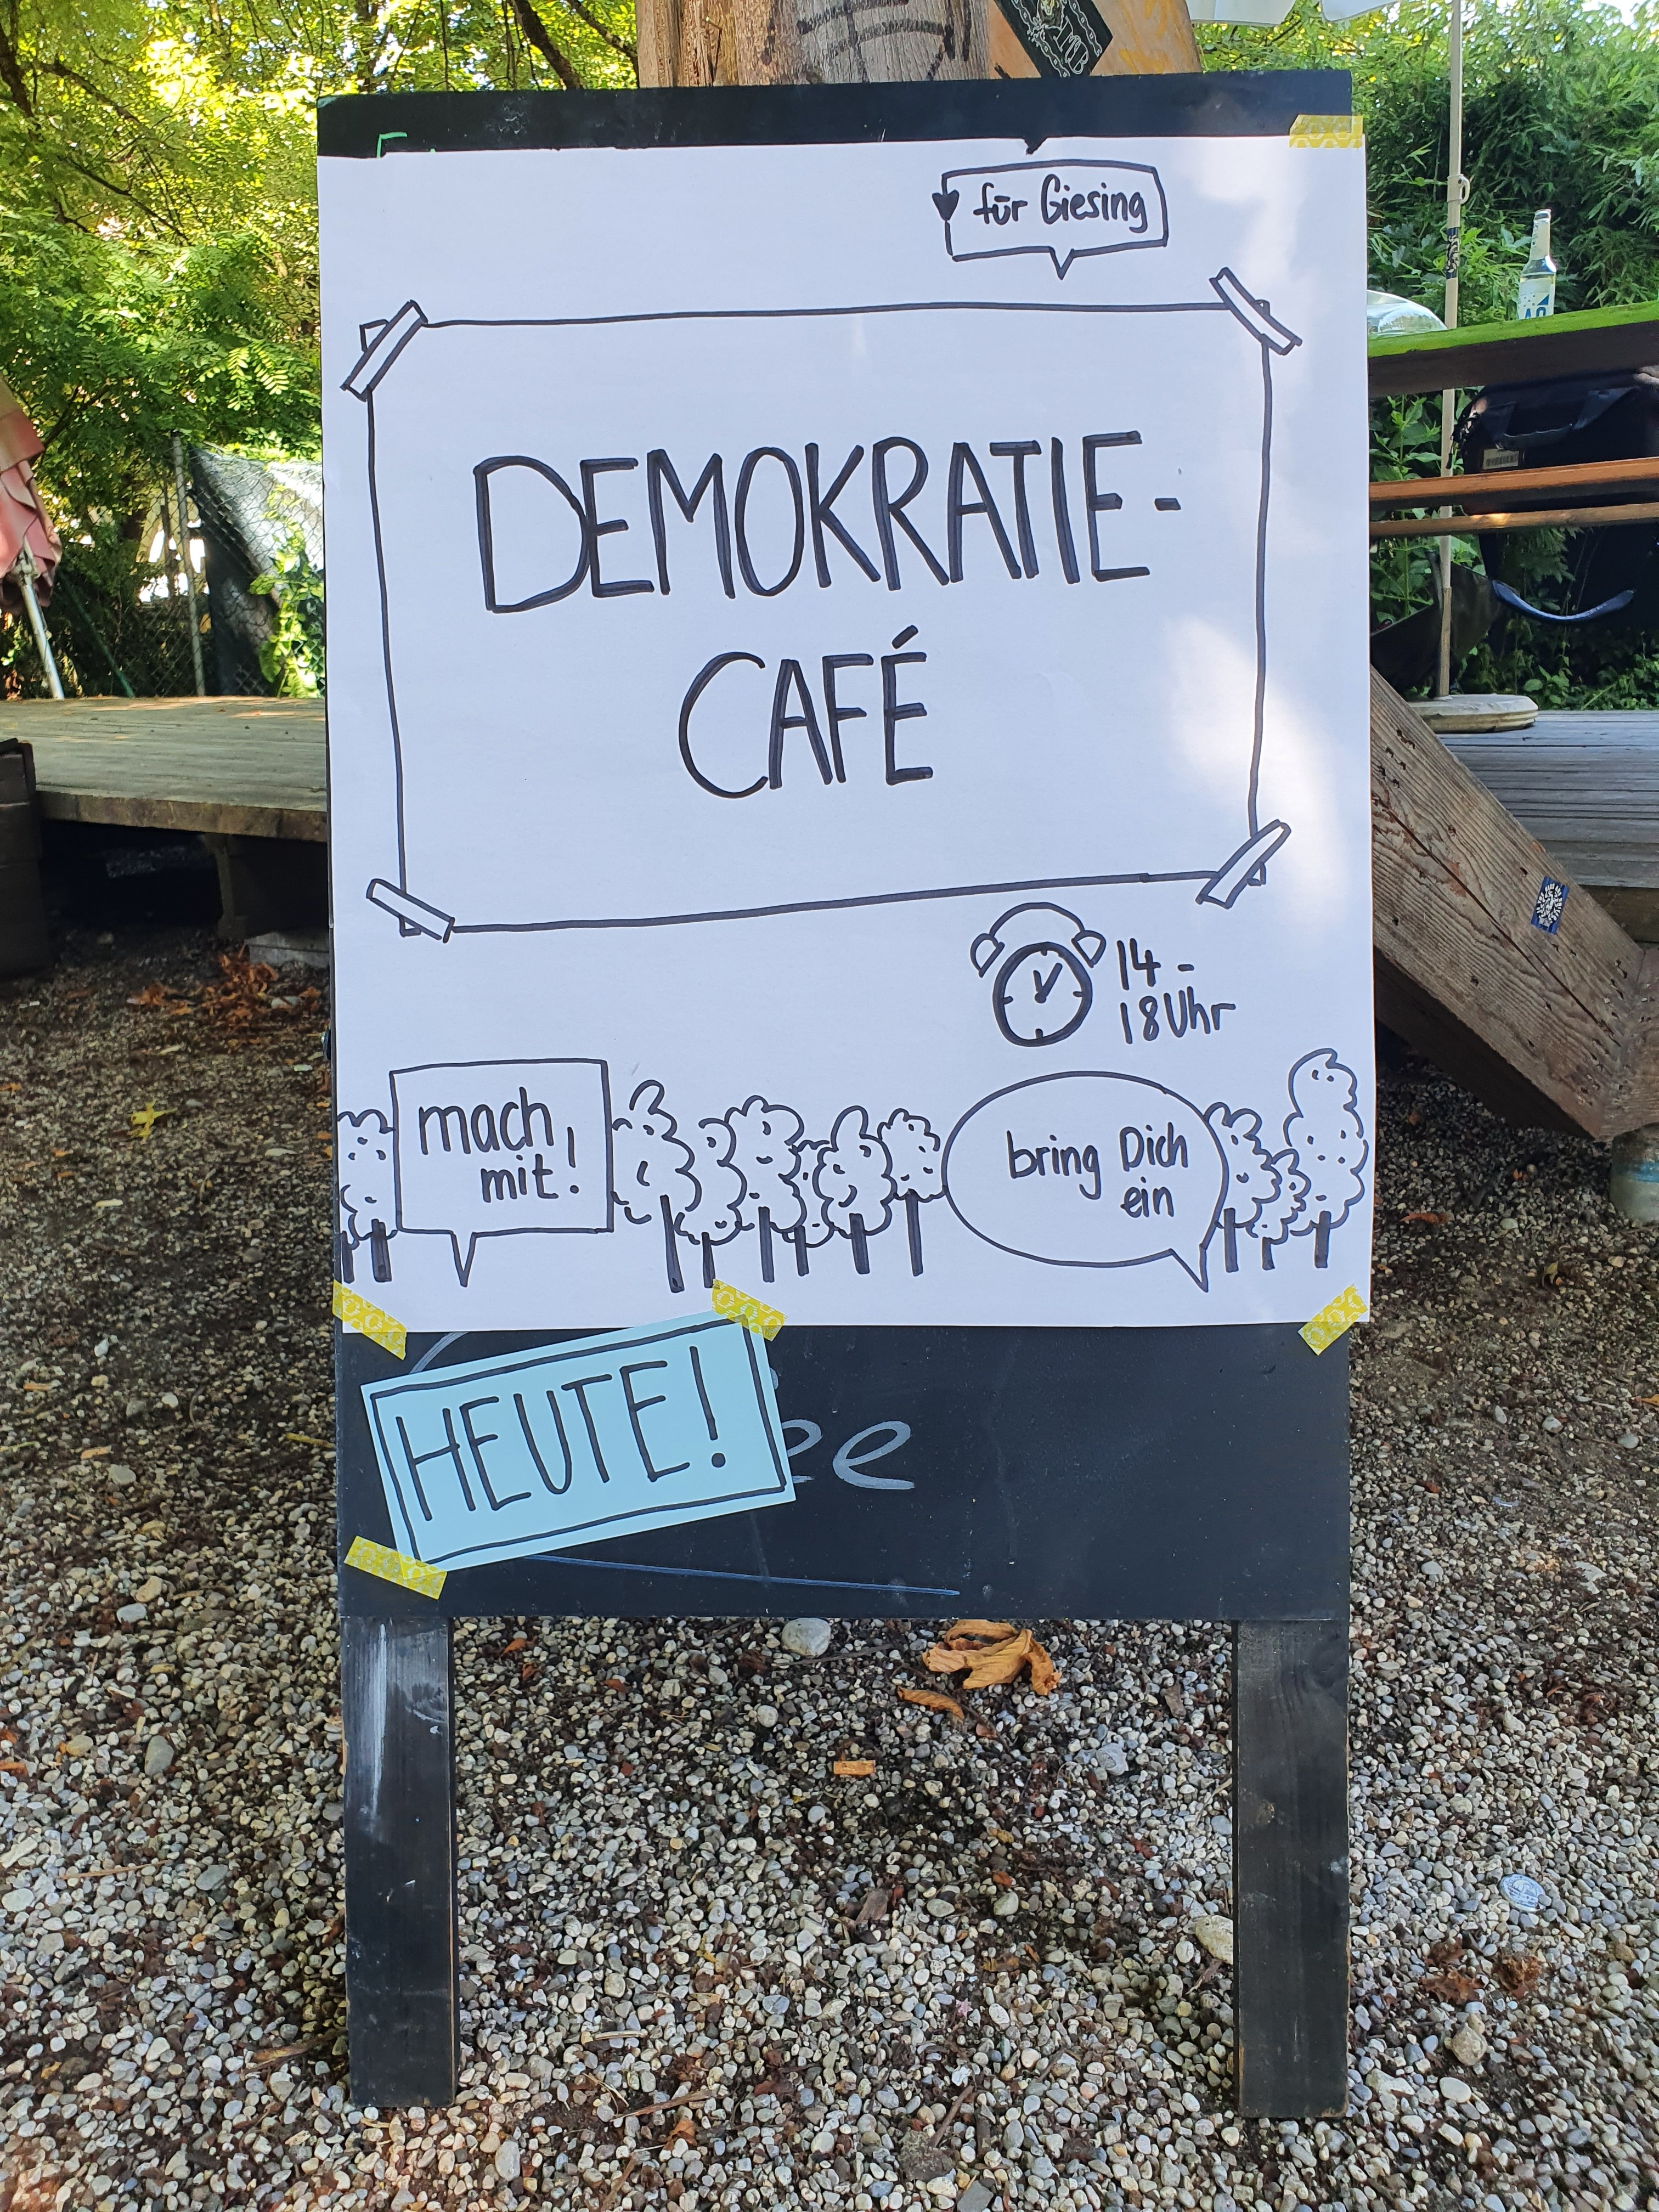 für Giesing
DEMOKRATIE-
CAFÉ
14-
18 Uhr
mach
mit!
bring Dich
ein
HEUTE!
ee